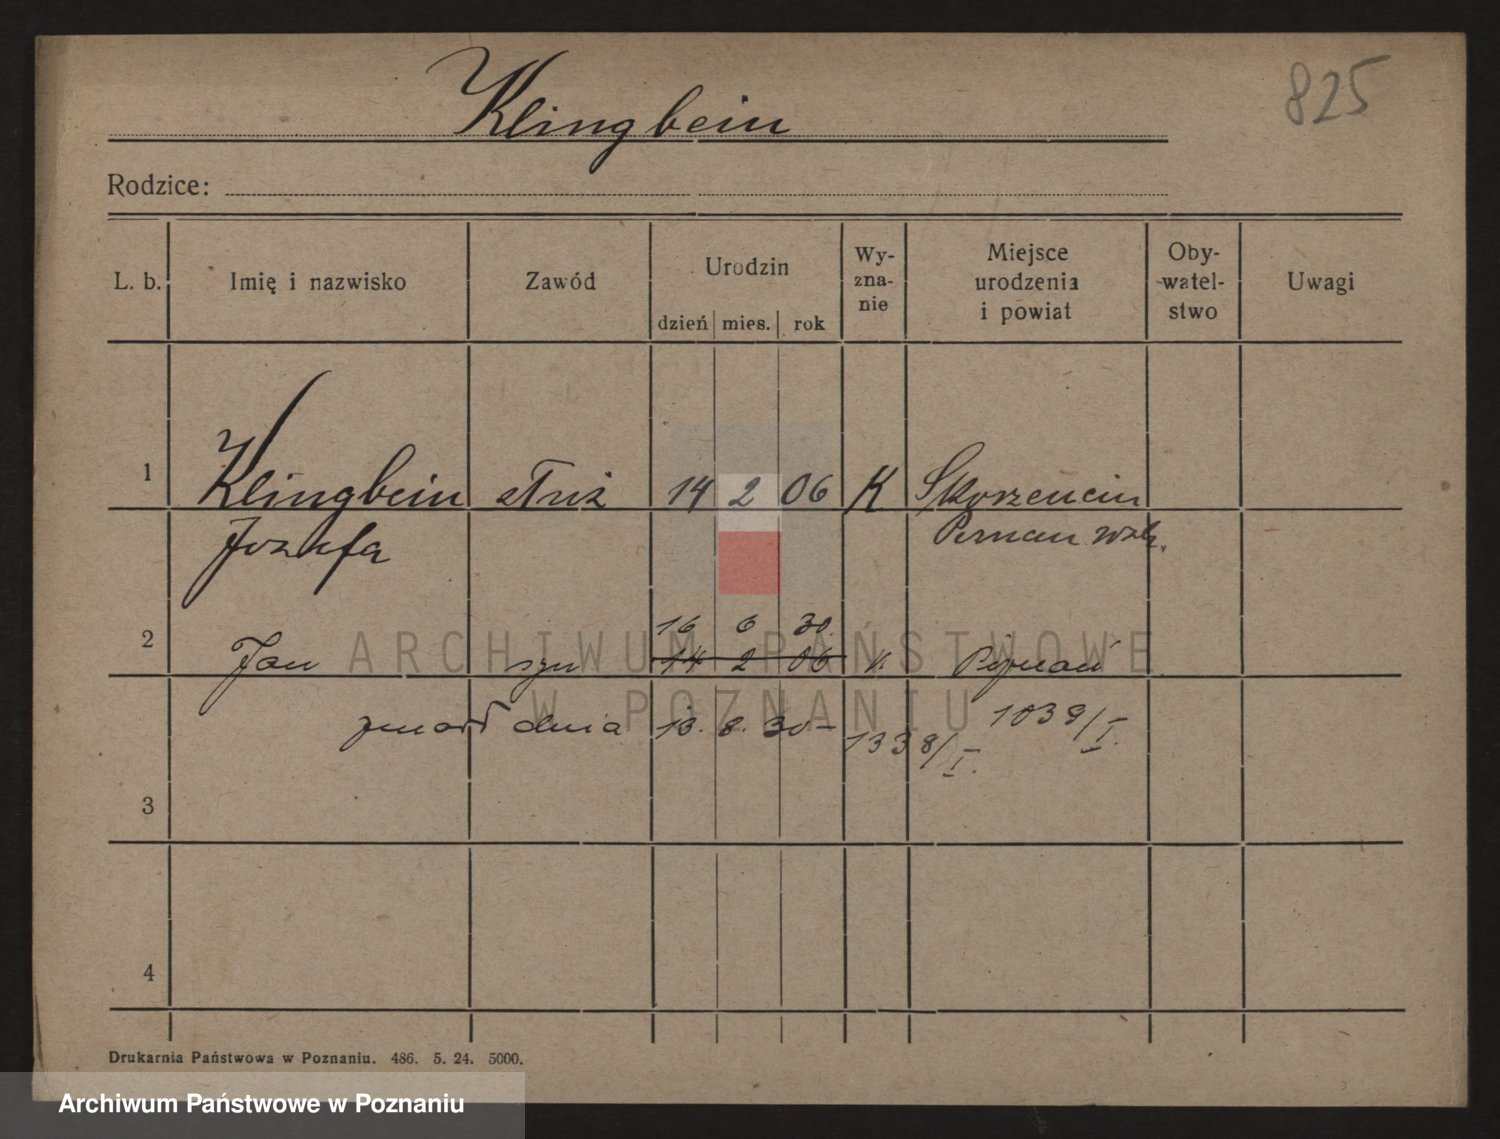 Klingbein
825
Rodzice:
L. b. Imię i nazwisko Zawód Urodzin dzień mies. rok Wy-zna-nie Miejsce urodzenia i powiat Oby-watel-stwo Uwagi
1 Klingbein służ 14 2 06 K
Józefa Poznań
16 6 30.
2 Jan syn 14 2 06 K. Poznań
zmarł dnia 13. 8. 30 - 1338/I. 1039/I.
3
4
Drukarnia Państwowa w Poznaniu. 486. 5. 24. 5000.
ARCHIWUM PAŃSTWOWE
W POZNANIU
Archiwum Państwowe w Poznaniu